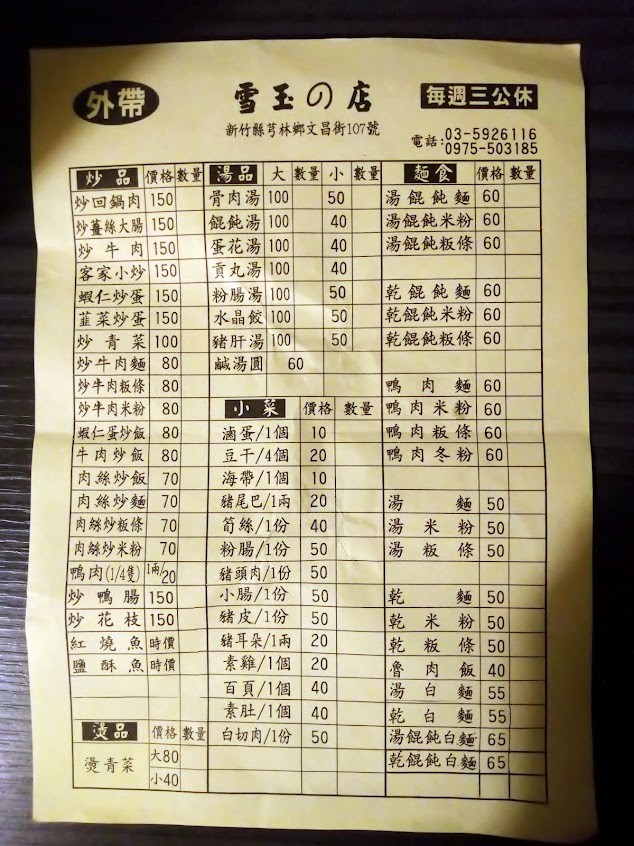 外帶
雪玉の店
每週三公休
新竹縣芎林鄉文昌街107號
電話:03-5926116
0975-503185
炒品 價格 數量
炒回鍋肉 150
炒薑絲大腸 150
炒牛肉 150
客家小炒 150
蝦仁炒蛋 150
韮菜炒蛋 150
炒青菜 100
炒牛肉麵 80
炒牛肉粄條 80
炒牛肉米粉 80
蝦仁蛋炒飯 80
牛肉炒飯 80
肉絲炒飯 70
肉絲炒麵 70
肉絲炒粄條 70
肉絲炒米粉 70
鴨肉(1/4隻) 1兩/20
炒鴨腸 150
炒花枝 150
紅燒魚 時價
鹽酥魚 時價
燙品 價格 數量
燙青菜 大80
小40
湯品 大 數量 小 數量
骨肉湯 100 50
餛飩湯 100 40
蛋花湯 100 40
貢丸湯 100 40
粉腸湯 100 50
水晶餃 100 50
豬肝湯 100 50
鹹湯圓 60
小菜 價格 數量
滷蛋/1個 10
豆干/4個 20
海帶/1個 10
豬尾巴/1兩 20
筍絲/1份 40
粉腸/1份 50
豬頭肉/1份 50
小腸/1份 50
豬皮/1份 50
豬耳朵/1兩 20
素雞/1個 20
百頁/1個 40
素肚/1個 40
白切肉/1份 50
麵食 價格 數量
湯餛飩麵 60
湯餛飩米粉 60
湯餛飩粄條 60
乾餛飩麵 60
乾餛飩米粉 60
乾餛飩粄條 60
鴨肉麵 60
鴨肉米粉 60
鴨肉粄條 60
鴨肉冬粉 60
湯麵 50
湯米粉 50
湯粄條 50
乾麵 50
乾米粉 50
乾粄條 50
魯肉飯 40
湯白麵 55
乾白麵 55
湯餛飩白麵 65
乾餛飩白麵 65